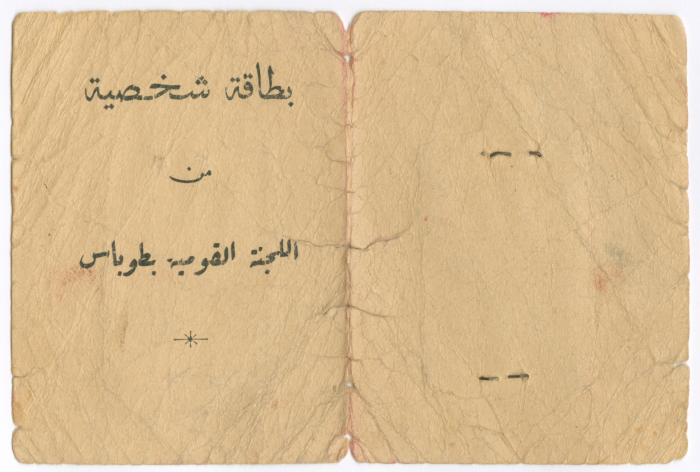 بطاقة شخصية
من
اللجنة القومية بطوباس